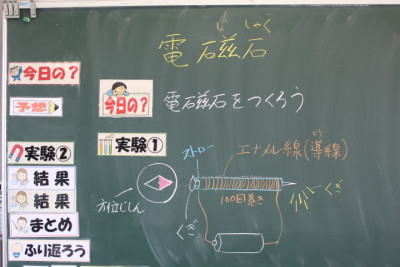 じしゃく
電磁石
今日の?
予想
今日の?
電磁石をつくろう
実験①
実験②
結果
結果
まとめ
ふり返ろう
ストロー
エナメル線(導線)
どう
100回巻き
方位じしん
くぎ
くぎ